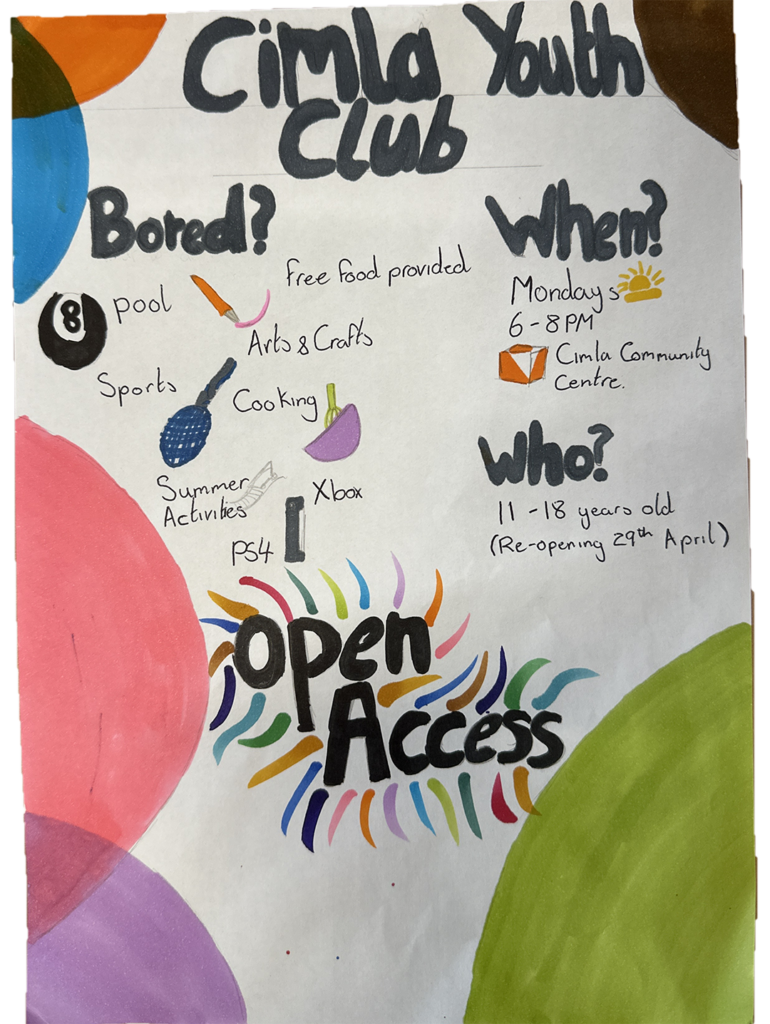 Cimla Youth
Club
Bored?
8
pool
Free food provided
Arts & Crafts
Sports
Cooking
Summer
Activities
Xbox
PS4
When?
Mondays
6-8PM
Cimla Community
Centre.
Who?
11-18 years old
(Re-opening 29th April)
Open
Access